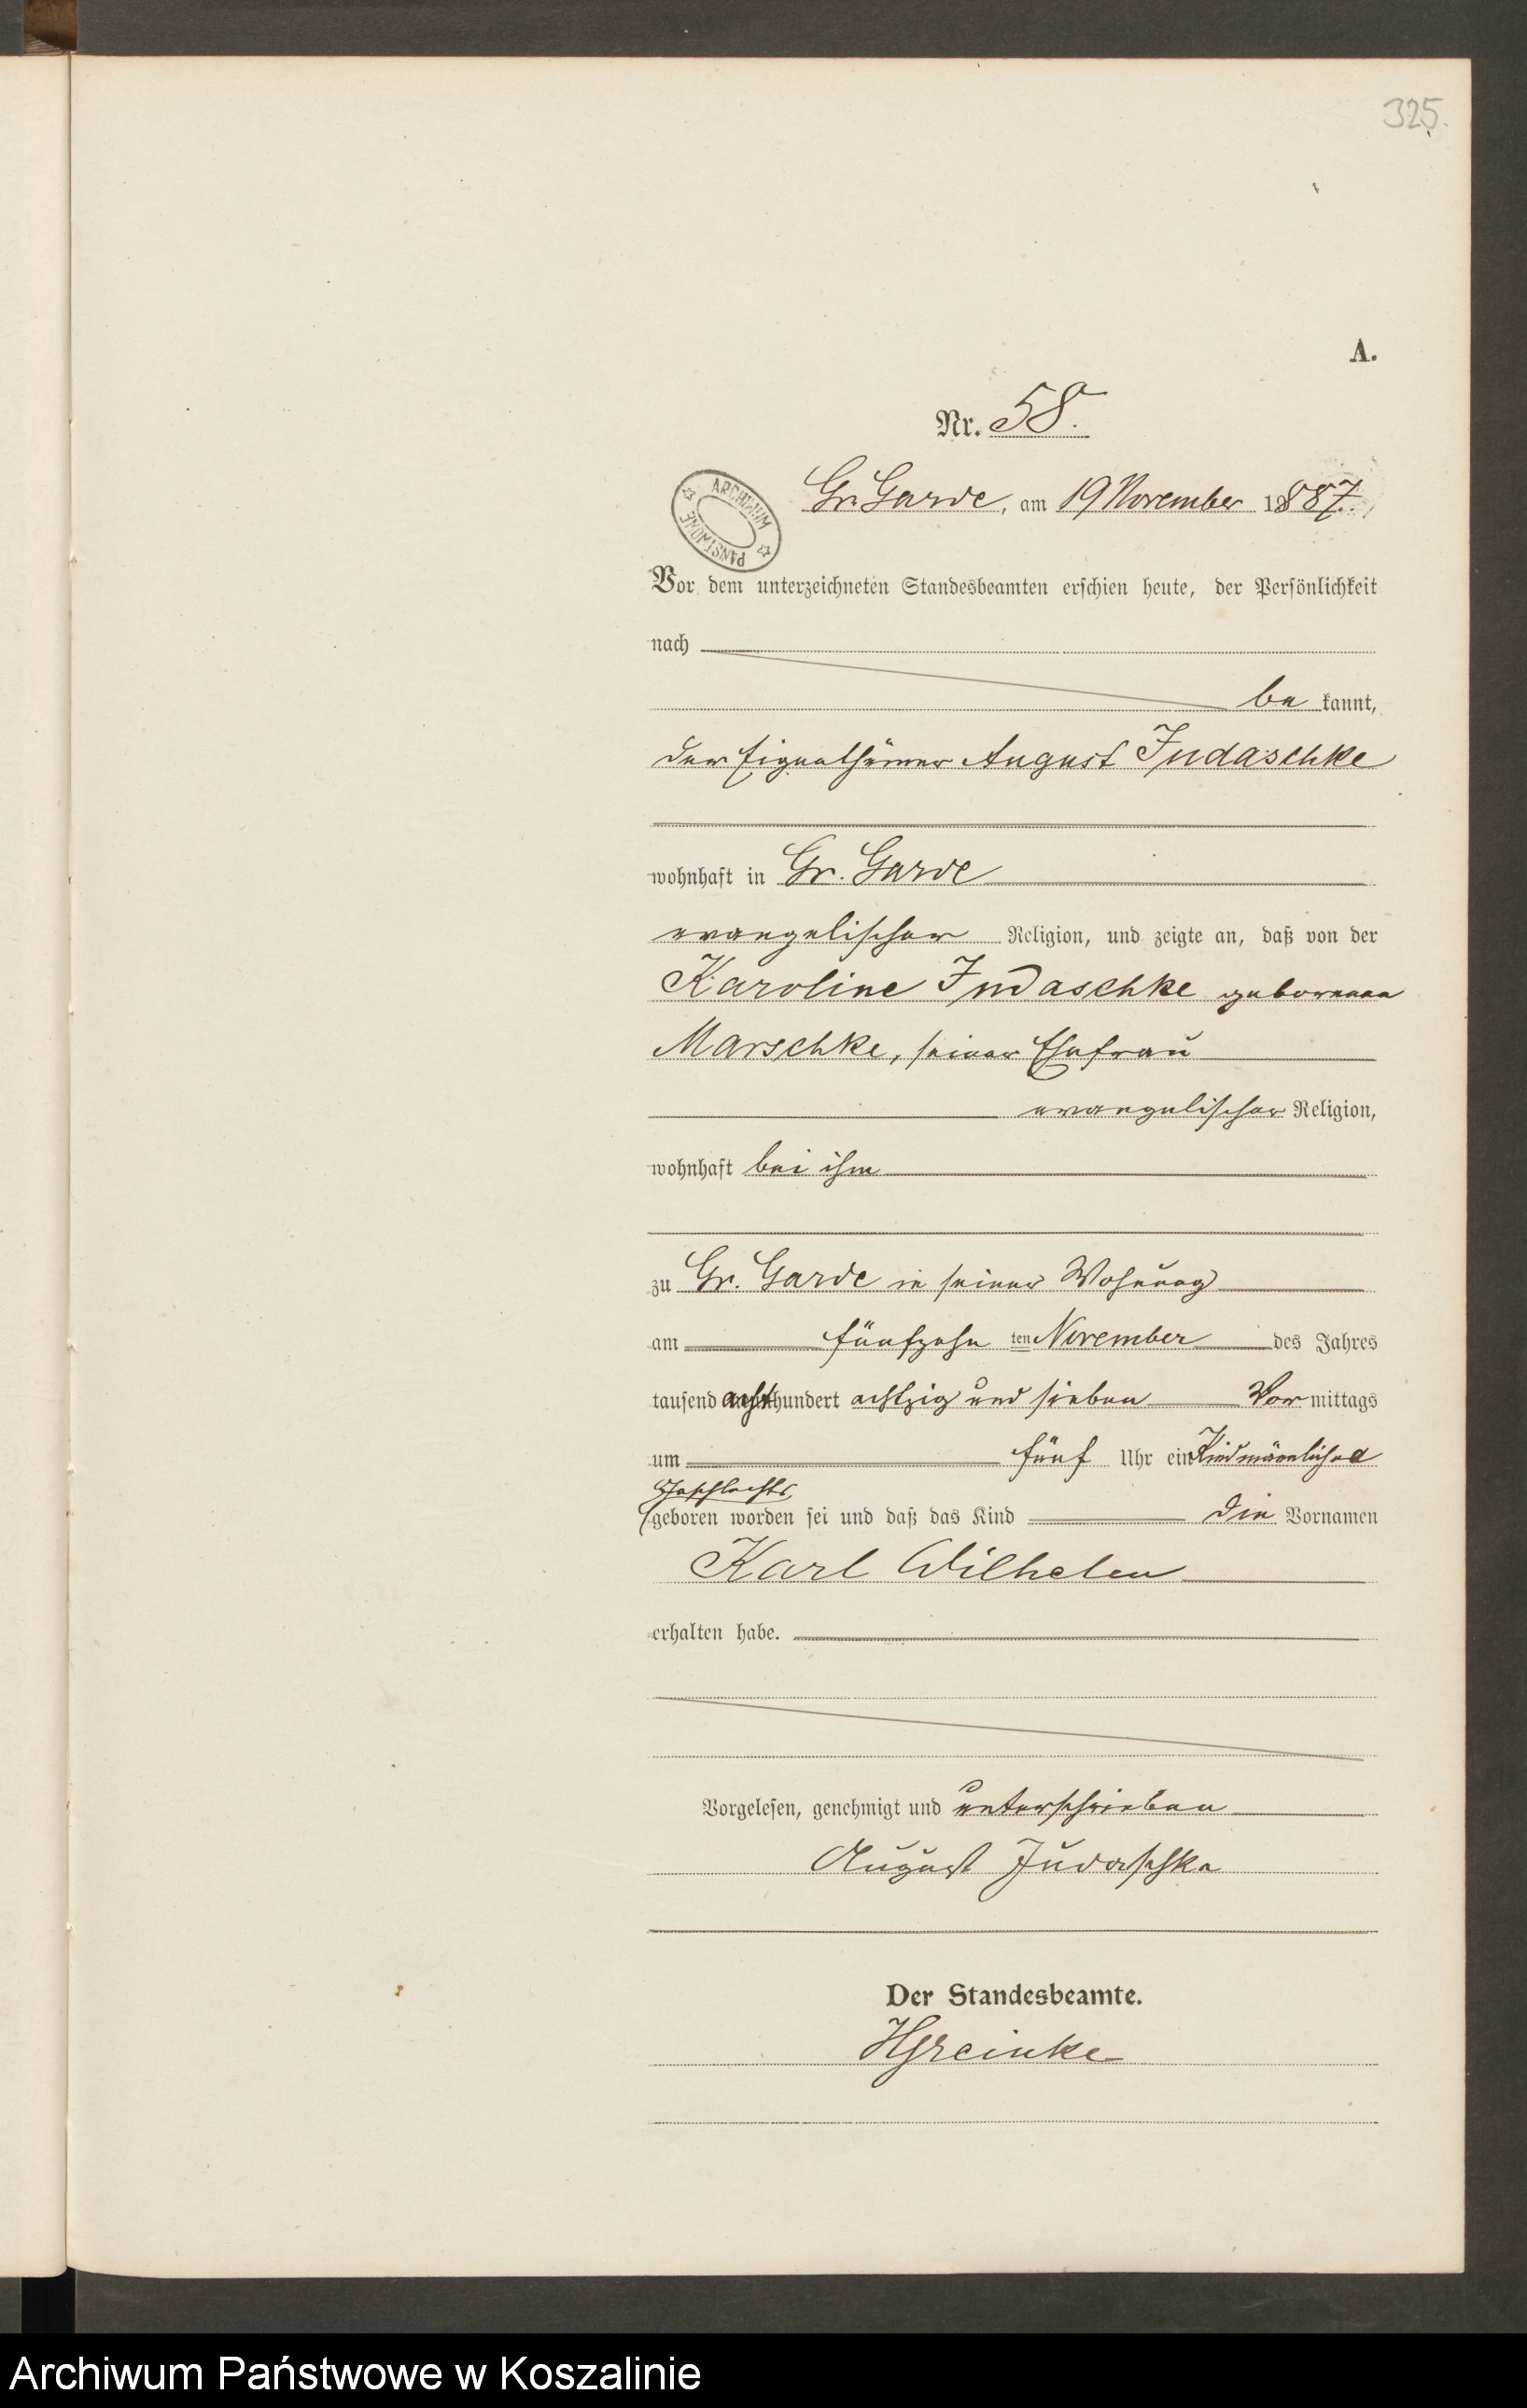 325.
A.
Nr. 58.
Gr. Garde, am 19 November 1887.
ARCHIWUM PAŃSTWOWE
Vor dem unterzeichneten Standesbeamten erschien heute, der Persönlichkeit
nach
be kannt,
der Eigenthümer August Judaschke
wohnhaft in Gr. Garde
evangelischer Religion, und zeigte an, daß von der
Karoline Judaschke geborenen
Marschke, seiner Ehefrau
evangelischer Religion,
wohnhaft bei ihm
zu Gr. Garde in seiner Wohnung
am fünfzehn ten November des Jahres
tausend acht hundert achtzig und sieben Vor mittags
um fünf Uhr ein Kind männlichen
Geschlechts
geboren worden sei und daß das Kind die Vornamen
Karl Wilhelm
erhalten habe.
Vorgelesen, genehmigt und unterschrieben
August Judaschke
Der Standesbeamte.
Archiwum Państwowe w Koszalinie